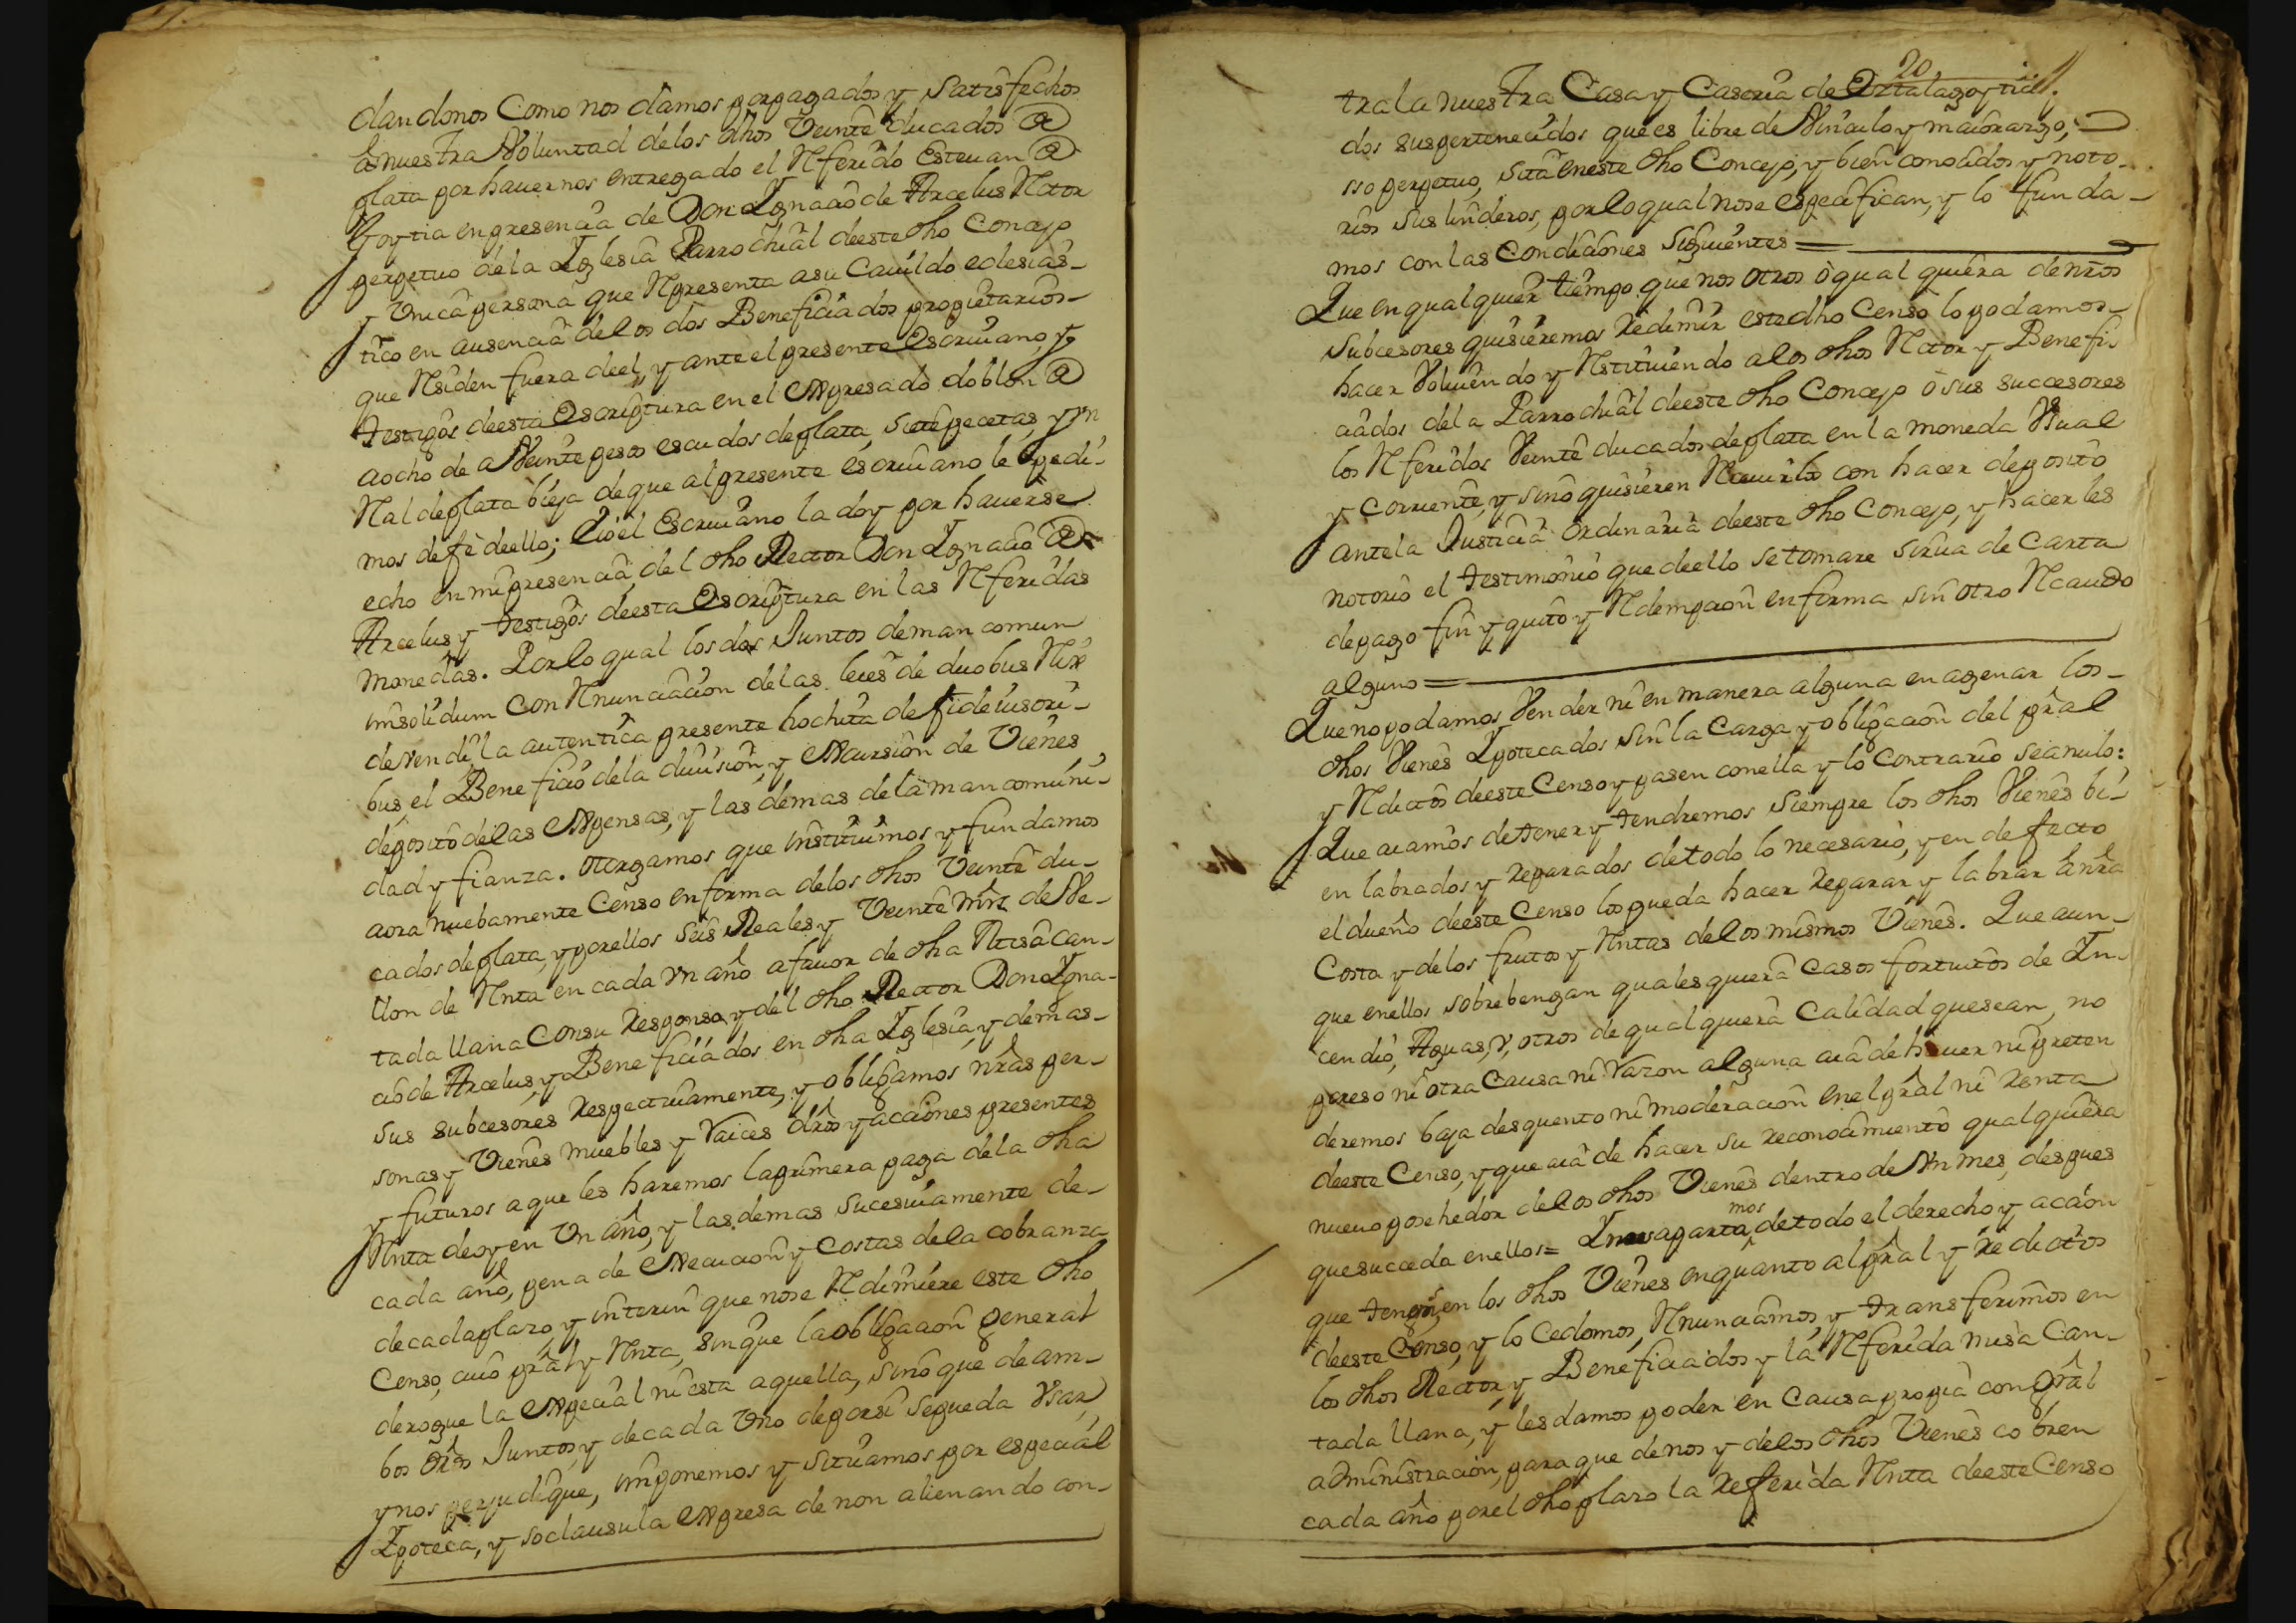 dandonos Como nos damos por pagados y Satisfechos
à nuestra Voluntad de los dhos Veinte ducados @
plata por havernos entregado el Referido Estevan @
Goytia en presencia de Don Ygnacio de Arcelus Rector
perpetuo de la Yglesia Parrochial de este dho Concejo
y Unica persona que Representa a su Cavildo eclesias-
tico en ausencia de los dos Beneficiados propietarios-
que Residen fuera de el, y ante el presente Escrivano, y
testigos de esta Escriptura en el expresado doblon @
aocho de a Veinte pesos escudos de plata, siete pecetas, y un
Real de plata bieja de que al presente escrivano le pedi-
mos de fè de ello; Eio el Escrivano la doy por haverse
echo en mi presencia, del dho Rector Don Ygnacio @
Arcelus y testigos de esta Escriptura en las Referidas
monedas. Por lo qual los dos Juntos de man comun
insolidum Con Renunciacion de las leies de duobus Rex
devendi, la autentica presente hochita de fideiusori-
bus, el Beneficio de la division, y excursion de Vienes
deposito de las expensas, y las demas de la mancomuni-
dad y fianza. otorgamos que instituimos y fundamos
aora nuebamente Censo en forma de los dhos Veinte du-
cados de plata, y por ellos seis Reales y Veinte mrs de Ve-
llon de Renta en cada un año a favor de dha Missa can-
tada llana Con su Responso, y del dho Rector Don Ygna-
cio de Arcelus, y Beneficiados en dha Yglesia, y demas-
sus subcesores respectivamente, y obligamos nras per-
sonas y Vienes muebles y Raices dros y acciones presentes
y futuros a que les haremos la primera paga de la dha
Renta de oy en Un año, y las demas sucesivamente de-
cada año, pena de execucion y costas de la cobranza
de cada plazo, y interin que no se Redimiere este dho
Censo, cuio pral y Renta, sin que la obligacion general
derogue la expecial ni esta aquella, sino que de am-
bos dros Juntos, y de cada Uno de por si se pueda Usar,
y nos perjudique, imponemos y situamos por especial
Ypoteca, y so clausula expresa de non alienando con-
20
tra la nuestra Casa y Caseria de Ortalagoytia
dos sus pertenecidos que es libre de Vinculo y maiorazgo,
sso perpetuo, sita en este dho Concejo, y bien conocidos y noto-
rios sus linderos, por lo qual no se especifican, y lo funda-
mos con las Condiciones siguientes =
Que en qualquier tiempo que nos otros ò qualquiera de nros
subcesores quisieremos Redimir este dho Censo lo podamos-
hacer Volviendo y Restituiendo a los dhos Rector y Benefi-
ciados de la Parrochial de este dho Concejo ò sus succesores
los Referidos Veinte ducados de plata en la moneda Usual
y Corriente, y sino quisieren Recivirlos con hacer deposito
ante la Justicia ordinaria de este dho Concejo, y hacerles
notorio el testimonio que de ello se tomare sirva de Carta
de pago fin y quito y Redempcion en forma sin otro Recaudo
alguno =
Que no podamos Vender ni en manera alguna en agenar los-
dhos Vienes Ypotecados sin la Carga y obligacion del pral
y Redictos de este Censo y pasen con ella y lo Contrario sea nulo:
Que aiamos de tener y tendremos siempre los dhos Vienes bi-
en labrados y reparados de todo lo necesario, y en defecto
el dueño de este Censo los pueda hacer reparar y labrar à nra
Costa y de los frutos y Rentas de los mismos Vienes. Que aun-
que en ellos sobrebengan qualesquiera casos fortuitos de In-
cendio, Aguas, y, otros de qualquiera Calidad que sean, no
por eso ni otra Causa ni Razon alguna aia de haver ni preten
deremos baja desquento ni moderacion en el pral ni renta
de este Censo, y que aia de hacer su reconocimiento qualquiera
nuevo posehedor de los dhos Vienes dentro de Un mes, despues
mos
que succeda en ellos = aparta de todo el derecho y accion
que tengo, en los dhos Vienes en quanto al pral y redictos
de este Censo, y lo Cedemos, Renunciamos, y transferimos en
los dhos Rector y Beneficiados y la Referida misa Can-
tada llana, y les damos poder en Causa propia con gral
administracion, para que de nos y de los dhos Vienes cobren
cada año por el dho plazo la referida Renta de este Censo